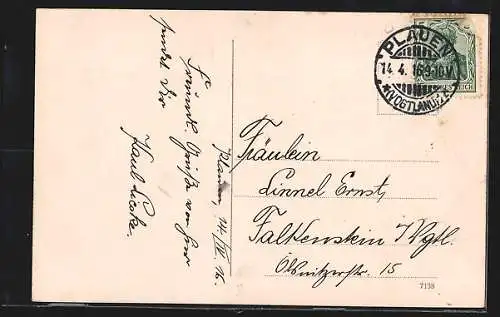 PLAUEN
14. 4. 16. 9-10 V.
*(VOGTLAND)
REICH
Plauen, 14/IV. 16.
Freundl. Grüße von hier
sendet Dir
Fräulein
Linnel Ernst,
Falkenstein i/Vgtl.
Ölsnitzerstr. 15
7138